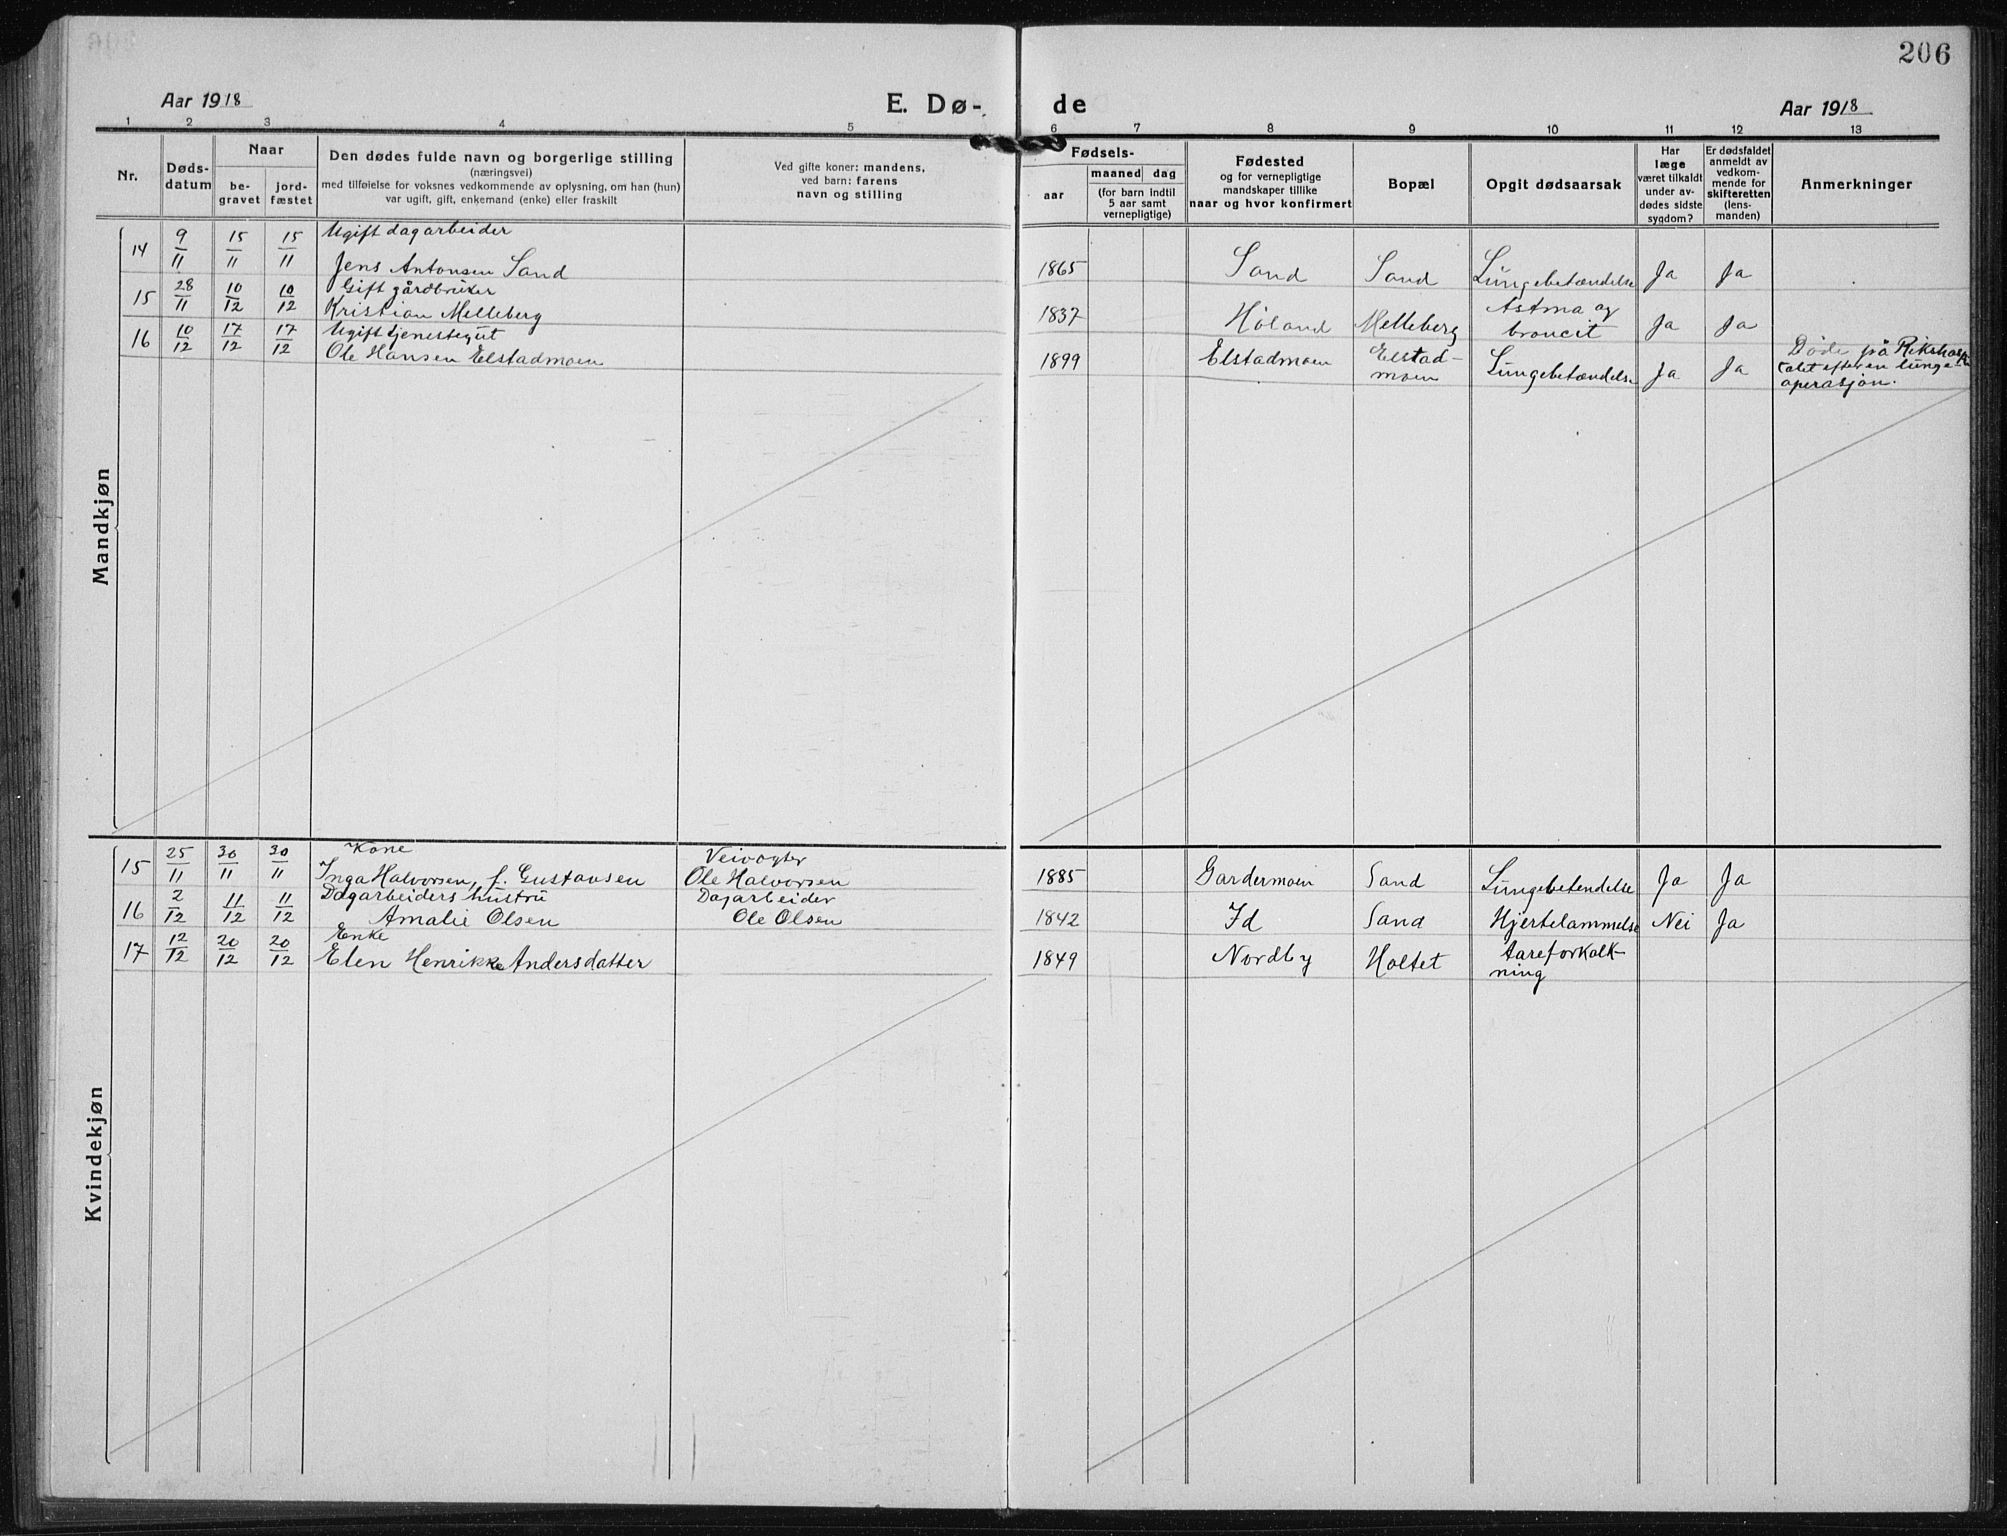 206
Aar 1918 E. Dø- de Aar 1918
1 2 3 4 5 6 7 8 9 10 11 12 13
Nr.
Døds-
datum
Naar
be-
gravet
jord-
fæstet
Den dødes fulde navn og borgerlige stilling
(næringsvei)
med tilføielse for voksnes vedkommende av oplysning, om han (hun)
var ugift, gift, enkemand (enke) eller fraskilt
Ved gifte koner: mandens,
ved barn: farens
navn og stilling
Fødsels-
aar
maaned dag
(for barn indtil
5 aar samt
vernepligtige)
Fødested
og for vernepligtige
mandskaper tillike
naar og hvor konfirmert
Bopæl
Opgit dødsaarsak
Har
læge
været tilkaldt
under av-
dødes sidste
sygdom?
Er dødsfaldet
anmeldt av
vedkom-
mende for
skifteretten
(lens-
manden)
Anmerkninger
Mandkjøn
14 9/11 15/11 15/11 Ugift dagarbeider
Jens Antonsen Sand 1865 Sand Sand Lungebetændelse Ja Ja
15 28/11 10/12 10/12 Gift gårdbruker
Kristian Melleberg 1837 Høland Melleberg Astma og
broncit Ja Ja
16 10/12 17/12 17/12 Ugift tjenestegut
Ole Hansen Elstadmoen 1899 Elstadmoen Elstad-
moen Lungebetændelse Ja Ja Døde på Rikshospi-
talet efter en lunge-
operasjon.
Kvindekjøn
15 25/11 30/11 30/11 Kone Veivogter
Inga Halvorsen, f. Gustavsen Ole Halvorsen 1885 Gardermoen Sand Lungebetendelse Ja Ja
16 2/12 11/12 11/12 Dagarbeiders hustru Dagarbeider
Amalie Olsen Ole Olsen 1842 Id Sand Hjertelammelse Nei Ja
17 12/12 20/12 20/12 Enke
Elen Henrikke Andersdatter 1849 Nordby Holtet Aareforkalk-
ning